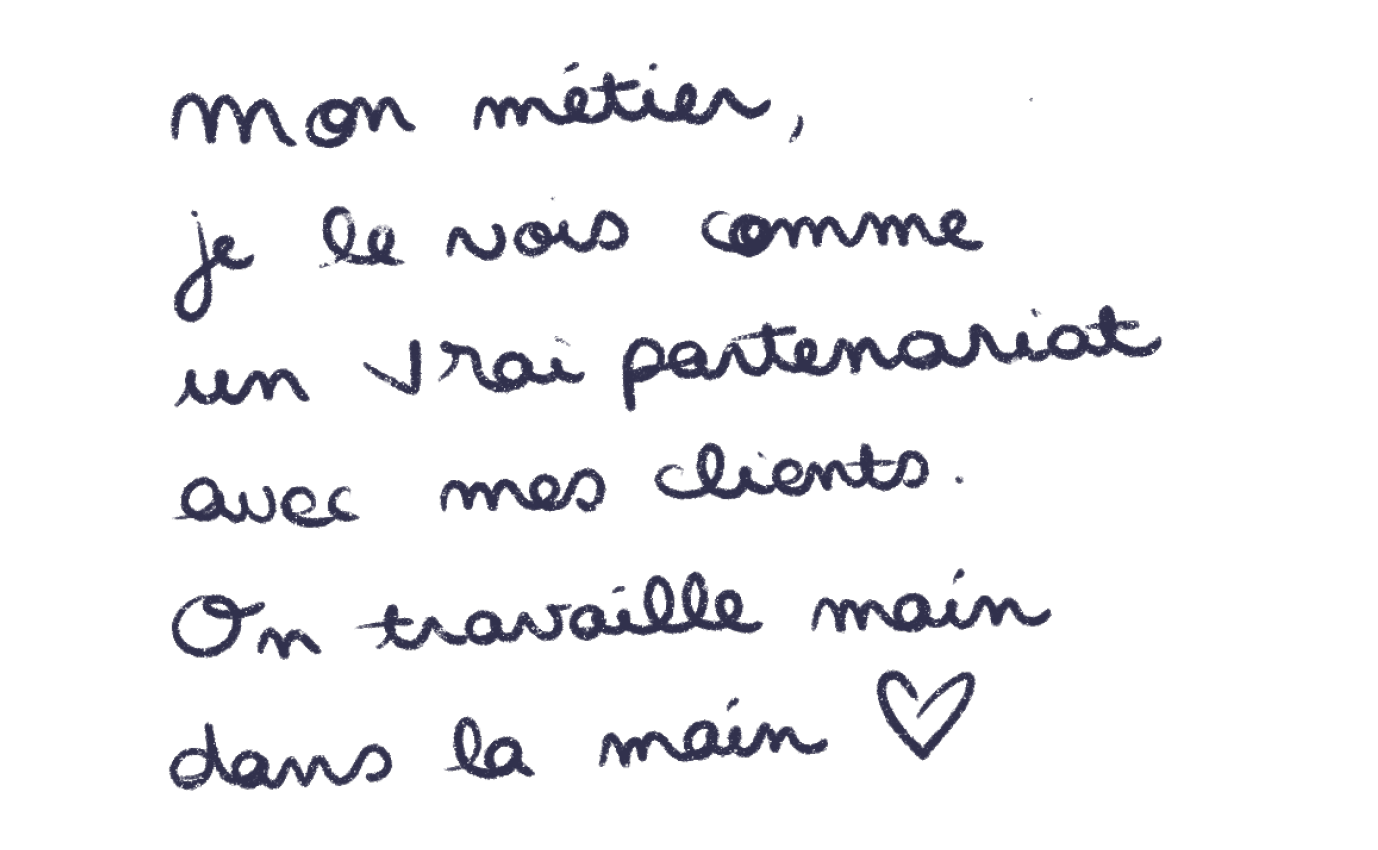 mon métier,
je le vois comme
un vrai partenariat
avec mes clients.
On travaille main
dans la main ♡